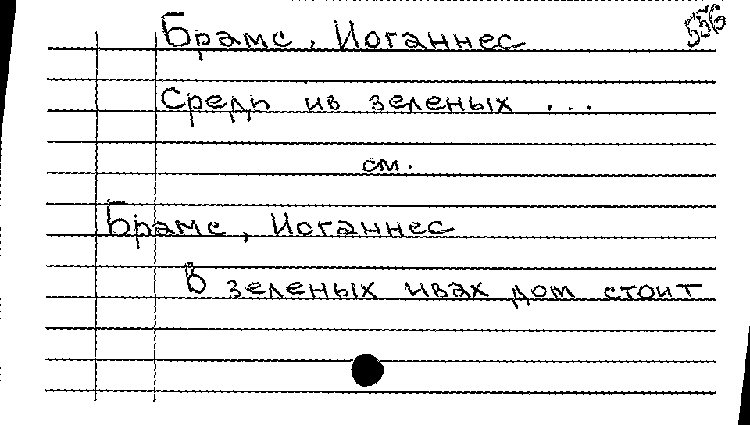 556
Брамс, Иоганнес
Средь ив зеленых ...
см.
Брамс, Иоганнес
В зеленых ивах дом стоит